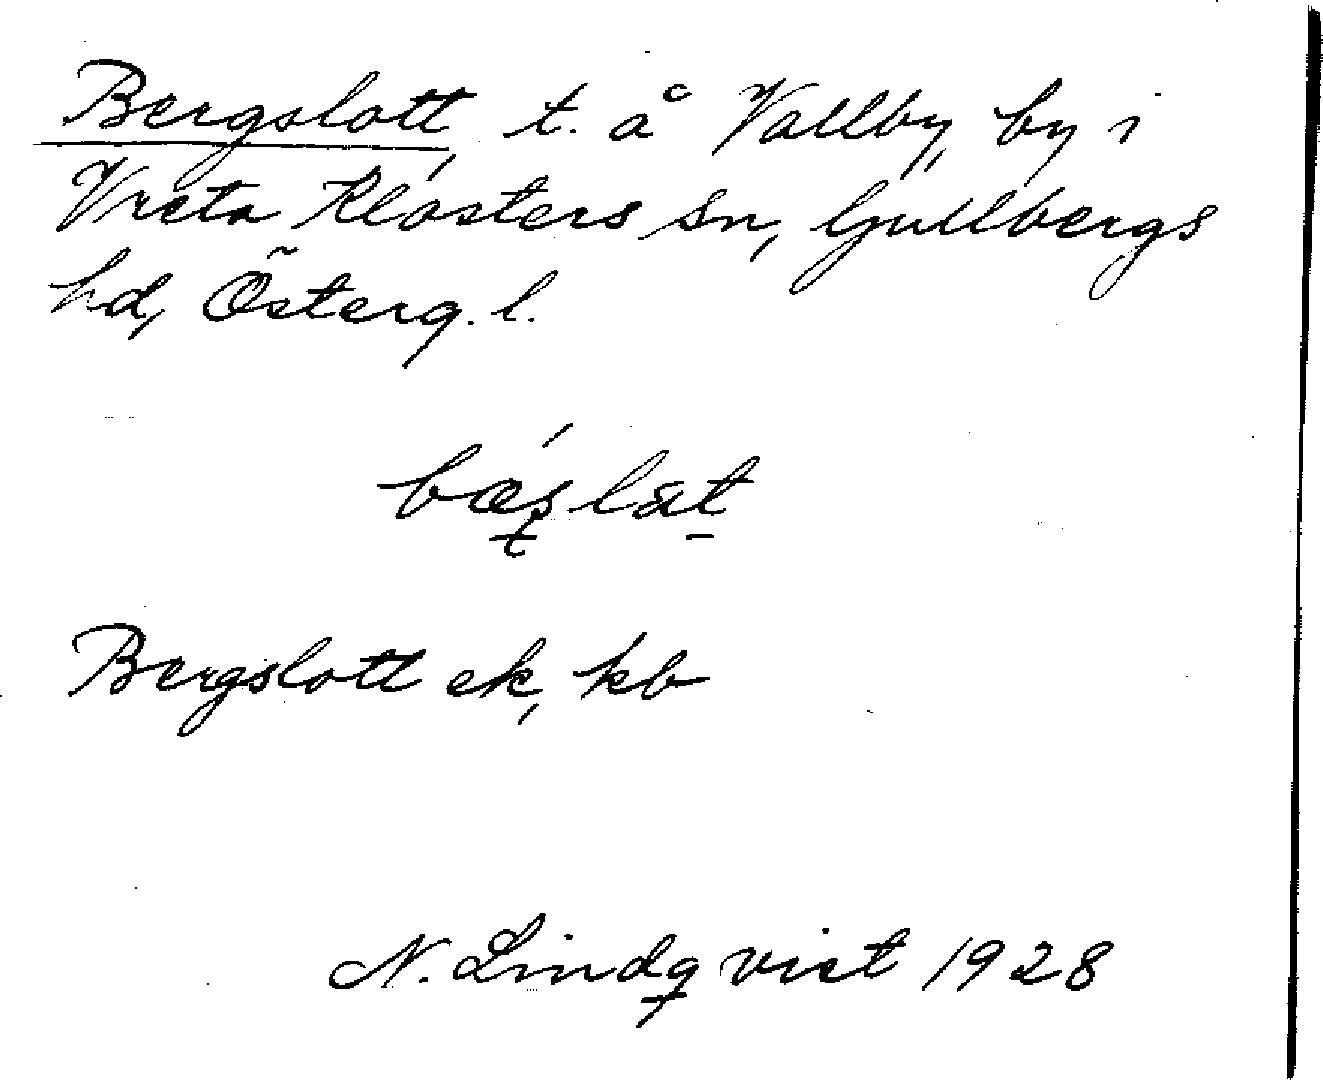 Bergslott, t. å Vallby, by i
Vreta Klosters sn, Gullbergs
hd, Österg. l.
Bergslott ek, kb
N. Lindqvist 1928